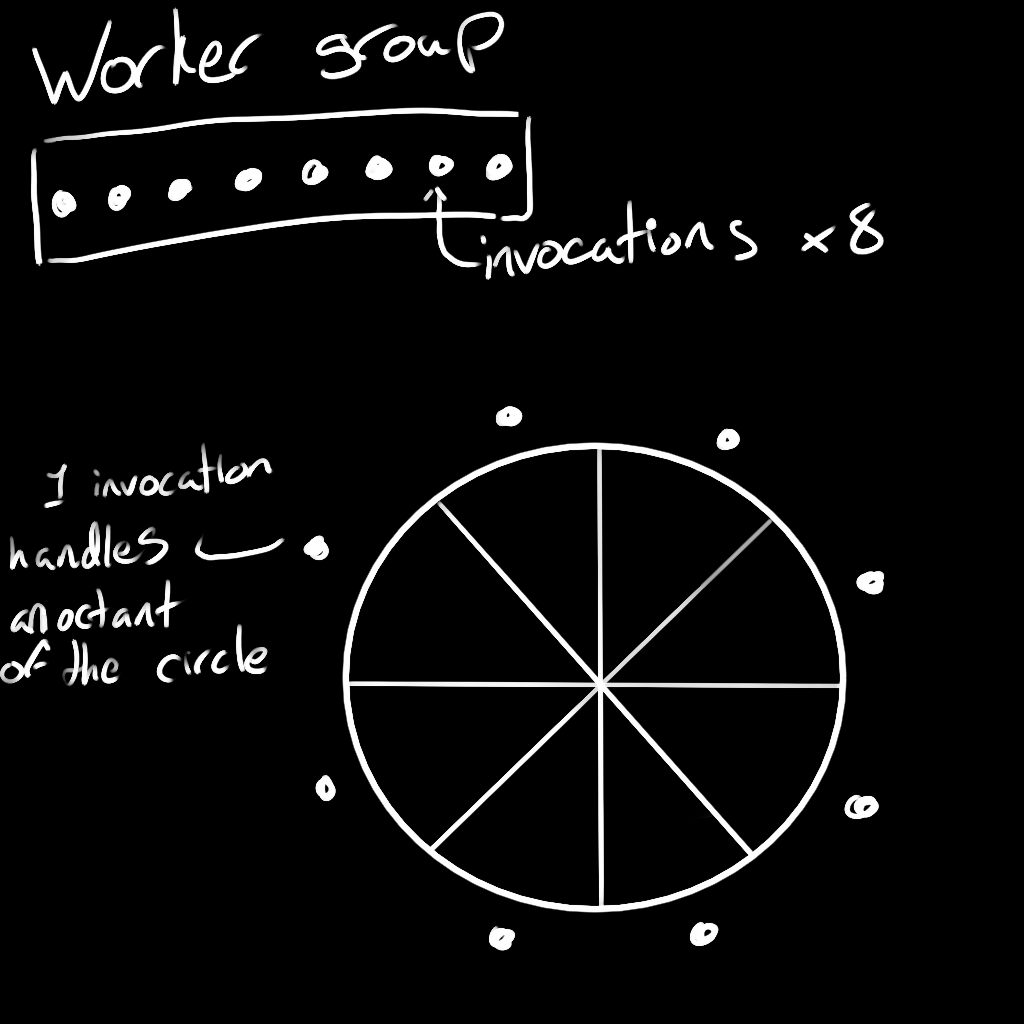 Worker group
invocations x 8
1 invocation
handles
an octant
of the circle